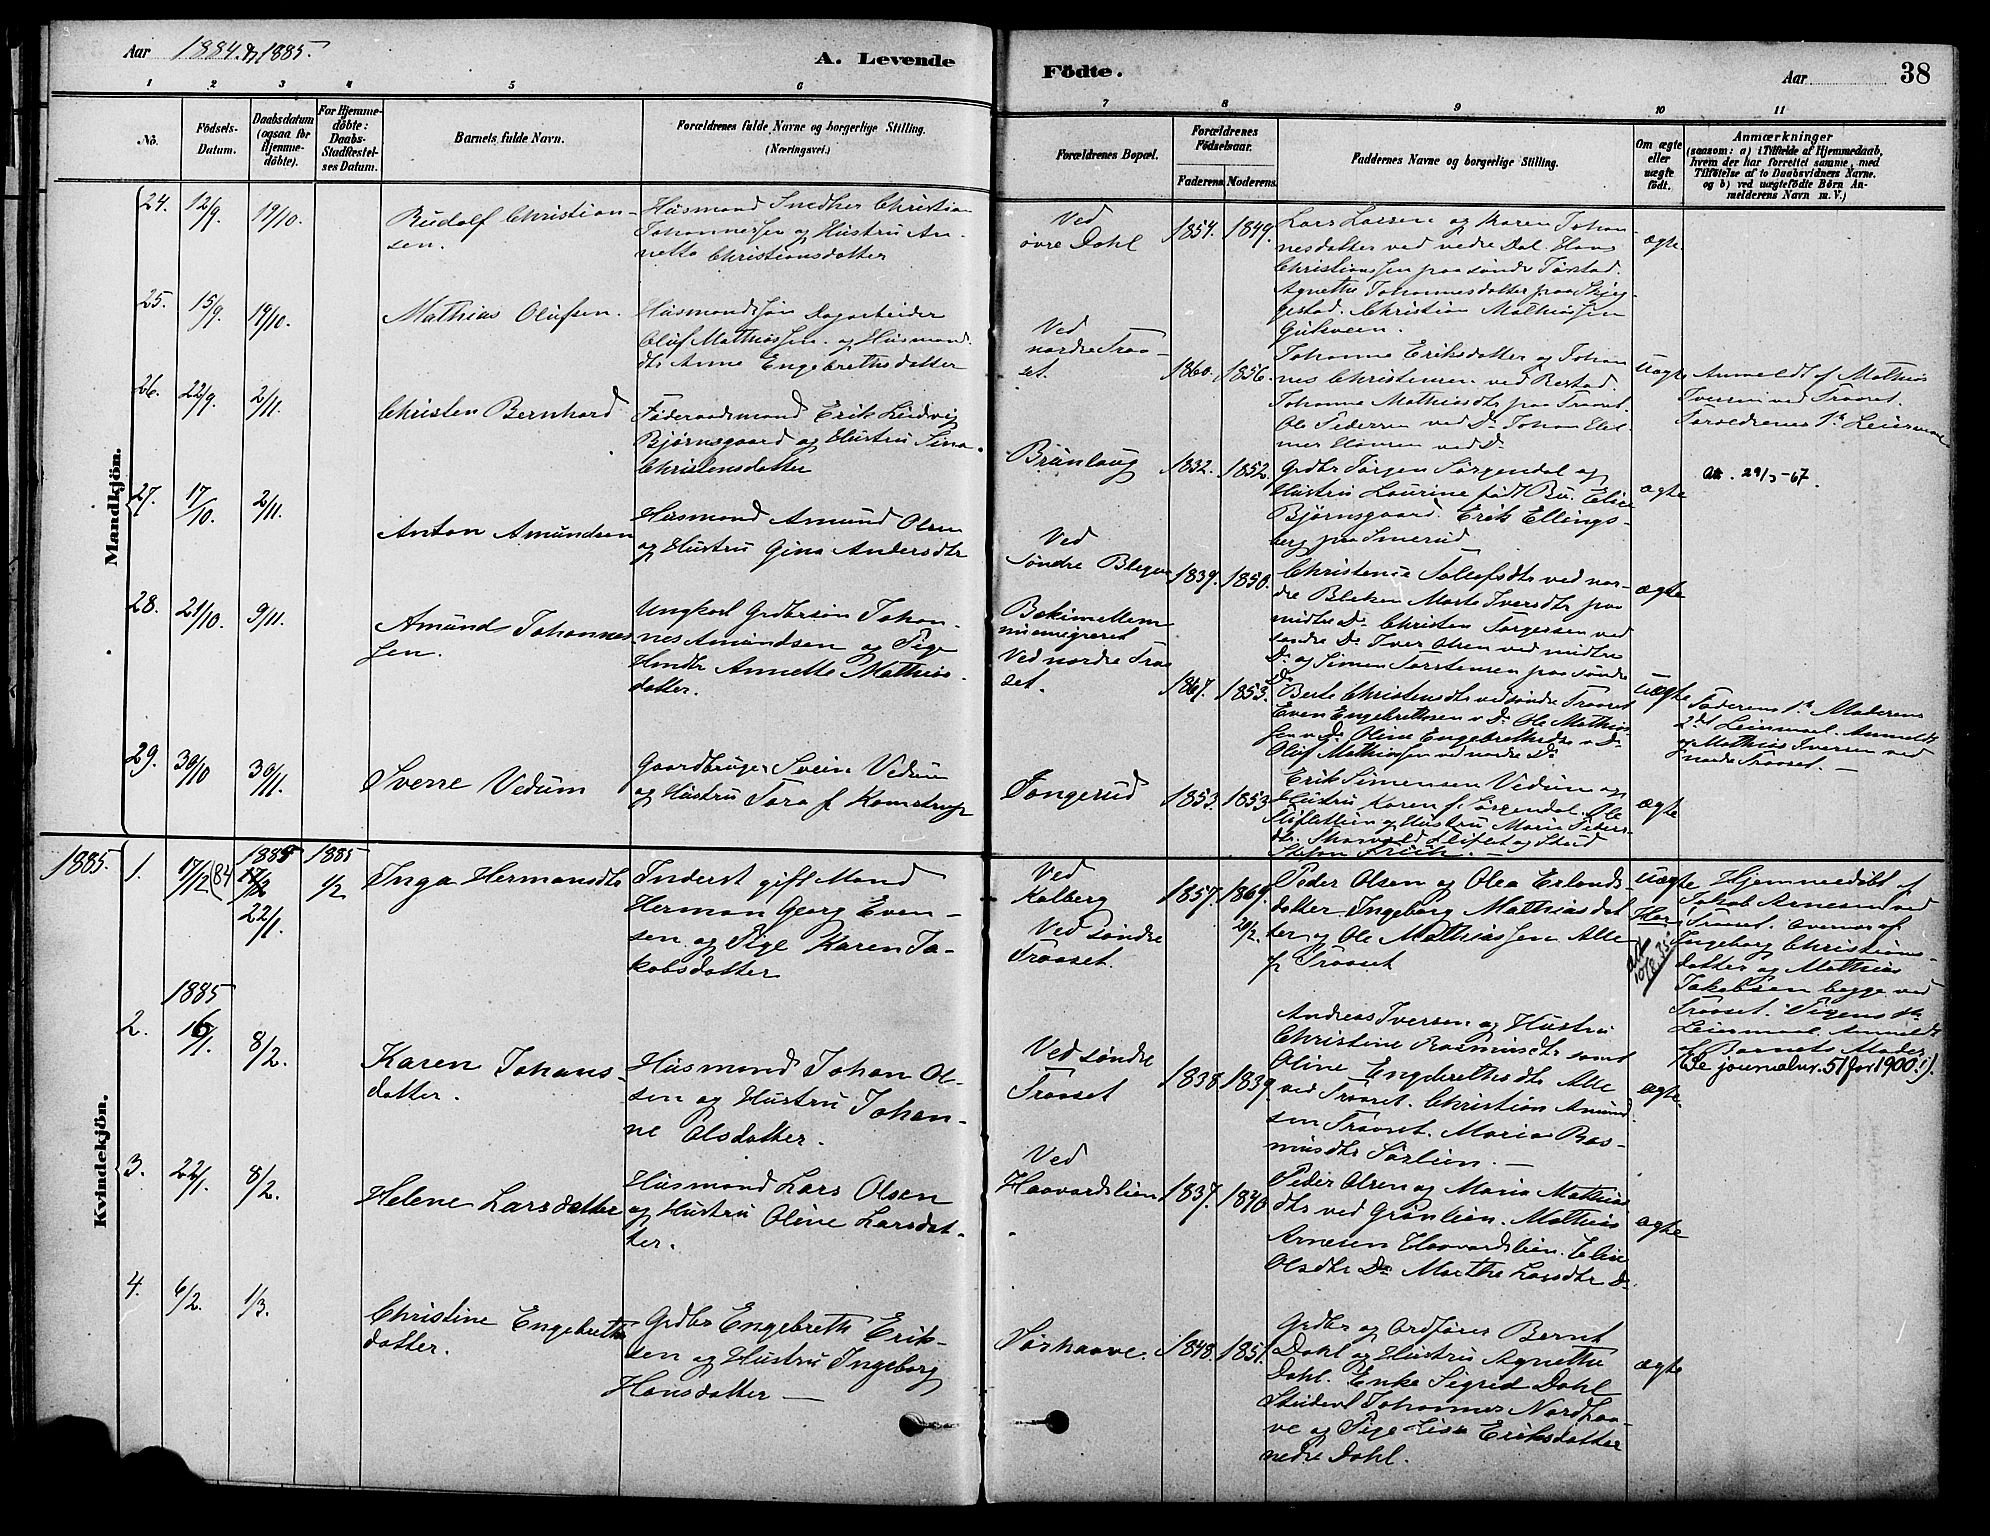 Aar 1884. & 1885.
A. Levende
Födte.
Aar
38
1 2 3 4 5 6 7 8 9 10 11
No.
Födsels-
Datum.
Daabsdatum
(ogsaa for
Hjemme-
döbte).
For Hjemme-
döbte:
Daabs-
Stadfæstel-
ses Datum.
Barnets fulde Navn.
Forældrenes fulde Navne og borgerlige Stilling.
(Næringsvei.)
Forældrenes Bopæl.
Forældrenes
Födselsaar.
Faderens. Moderens.
Faddernes Navne og borgerlige Stilling.
Om ægte
eller
uægte
födt.
Anmærkninger
(saasom: a) i Tilfælde af Hjemmedaab,
hvem der har forrettet samme, med
Tilföielse af to Daabsvidners Navne.
og b) ved uægtefödte Börn An-
melderens Navn m. V.)
Mandkjön.
24. 12/9. 19/10.
Rudolf Christian-
sen.
Husmand Snedker Christian
Johannessen og Hustru An-
nette Christiansdatter
Ved
øvre Dahl
1854. 1849.
Lars Larsen og Karen Johan-
nesdatter ved nedre Dal. Hans
Christianssen paa søndr Tørstad.
Agnethe Johannesdatter paa Skjeg-
gestad. Christian Mathiassen
Gulsveen.
ægte
25. 15/9. 19/10.
Mathias Olufsen.
Husmandssøn Dagarbeider
Oluf Mathiassen og Husmand.
dtr Anne Engebrethsdatter
Ved
nordre Traa-
set.
1860. 1856.
Johanne Eriksdatter og Johan
nes Christensen ved Berstad.
Johanne Mathiasdtr paa Traaset.
Ole Pedersen ved Do Johan
ved Do
uægte
Anmeldt af Mathias
Iversen ved Traaset.
Forældrenes 1ste Leiermaal
26. 22/9. 2/11.
Christen Bernhard
Føderaadsmand Erik Ludvig
Bjørnsgaard og Hustru Sina
Christensdatter
Brunlaug
1832. 1852.
Grdbr Jørgen Sørgendal og
Hustru Laurine født Bu. Elise
Bjørnsgaard. Erik Ellings-
berg paa Smerud
ægte
Att. 29/3-67.
27. 17/10. 2/11.
Anton Amundsen
Husmand Amund Olsen
og Hustru Gina Andersdtr
Ved
Søndre Bleken
1839. 1850.
Christense Tollefsdtr ved nor-
dre Bleken Marte Iversdtr paa
midtre Do Christen Torgersen ved
søndre Do Iver Olsen ved midtre
Do og Simen Torstensen paa søndre
Do
ægte
28. 21/10. 9/11.
Amund Johannes
sen.
Ungkarl Grdbrsøn Johan-
nes Amundsen og Pige
Hmdtr Annette Mathias-
datter.
Ved nordre Traa
set.
1861. 1853.
Berte Christensdtr ved søndre Traaset
Even Engebrethsen v Do Ole Mathias
sen ved Do Oline Engebrethsdtr v Do
Oluf Mathiassen ved nordre Do
uægte
Faderens 1ste Moderens
2det Leiermaal. Anmeldt
af Mathias Iversen ved
nordre Traaset. —
29. 30/10 30/11.
Sverre Vedum
Gaardbruger Svein Vedum
og Hustru Tora f. Komstrup
Jongerud
1853. 1853
Erik Simensen Vedum og
Hustru Karen f. Sørgendal. Ole
og Hustru Marie Peders-
dtr. Thorvald og Stud
ægte
1885.
Kvindekjön.
1. 17/12 (84 1885 22/1. 1885 1/2
Inga Hermansdtr
Inderst gift Mand
Herman Georg Even-
sen og Pige Karen Ja-
kobsdatter
Ved
Kalberg
Ved søndre
Traaset.
1857. 1869.
20/2.
Peder Olsen og Olea Erlands-
datter. Ingeborg Mathiasdat
ter og Ole Mathiassen Alle
p. Traaset
uægte
Hor
att 10/8.35
Hjemmedøbt af
Jakob Arnesen ved
Traaset. Overvær af
Ingeborg Christians-
datter og Mathias
Jakobsen begge ved
Traaset. Pigens 1ste
Leiermaal Anmeldt
af Barnets Moder.
(Se journalnr. 51 for 1900).
2. 1885 16/1. 8/2.
Karen Johans-
datter.
Husmand Johan Ol-
sen og Hustru Johan-
ne Olsdatter.
Ved søndre
Traaset
1838. 1839.
Andreas Iversen og Hustru
Christine Rasmusdtr samt
Oline Engebrethsdtr Alle
ved Traaset. Christian Amund-
sen Traaset. Maria Ras-
musdtr Sørlien. —
ægte.
3. 22/1. 8/2.
Helene Larsdatter
Husmand Lars Olsen
og Hustru Oline Larsdat-
ter.
Ved
Haavardslien
1837. 1840
Peder Olsen og Maria Mathias
dtr ved Grønlien. Mathias
Arnesen Haavardslien. Elise
Olsdtr Do Marthe Larsdtr Do
ægte
4. 6/2. 1/3.
Christine Engebreths
datter.
Grdbr Engebreth Erik-
sen og Hustru Ingeborg
Hansdatter —
Nørhaave.
1848. 1851.
Grdbr og Ordfører Bernt
Dahl og Hustru Agnethe
Dahl. Enke Sigrid Dahl
Student Johannes Nordhaa-
ve og Pige Lisa Eriksdatter
nedre Dahl.
ægte